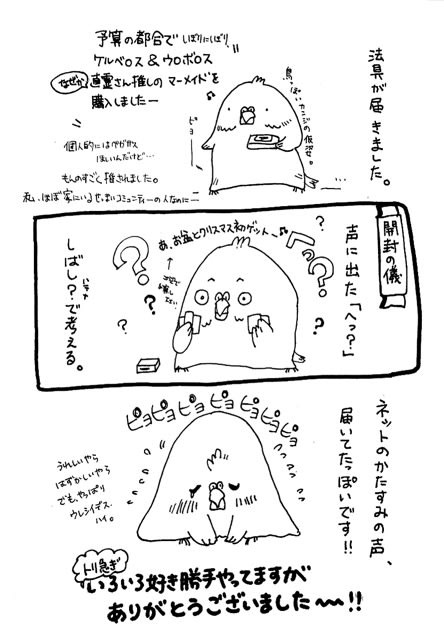 法具が届きました。
予算の都合でしぼりにしぼり、
ケルベロス&ウロボロス
なぜか
直霊さん推しの マーメイドを
購入しましたー
鳥っぽいたいぷの仮姿。
ピヨ
個人的にはペガサス
ほしいんだけど…
ものすごく推されました。
開封の儀
声に出た「へっ?」
へっ?
あ、お盆とクリスマス初ゲットー
?
?
?
?
?
しばし?で考える。
ネットのかたすみの声、
届いてたっぽいです!!
ピヨピヨピヨピヨピヨピヨ
うれしいやら
はずかしいやら
でも、やっぱり
ウレシイデス。
ハイ。
トリ急ぎ
いろいろ好き勝手やってますが
ありがとうございました〜!!